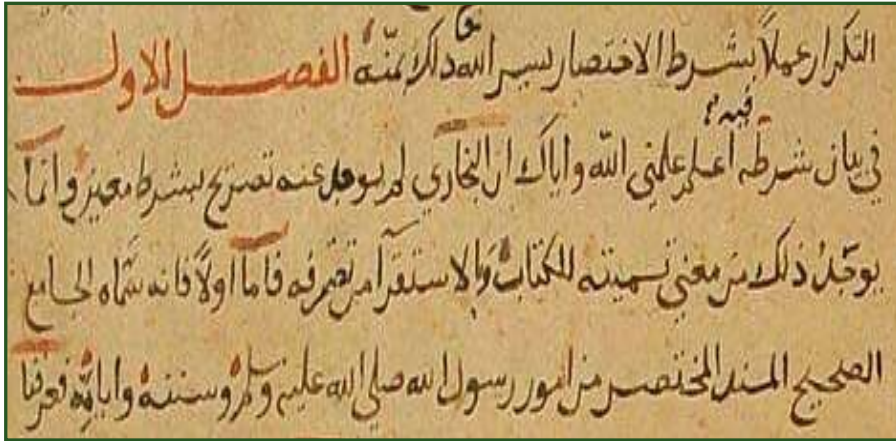 التكرار عملاً بشرط الاختصار يسر الله ذلك بمنّه الفصل الاول
فيه
في بيان شرطه اعلم علمني الله واياك ان البخاري لم يوجد عنه تصريح بشرط معين وانما
يوخذ ذلك من معني تسميته للكتاب وبالاستقرآ من تصرفه فاما اولاً فانه سماه الجامع
الصحيح المسند المختصر من امور رسول الله صلي الله عليه وسلم وسننه وايامه فعرفنا